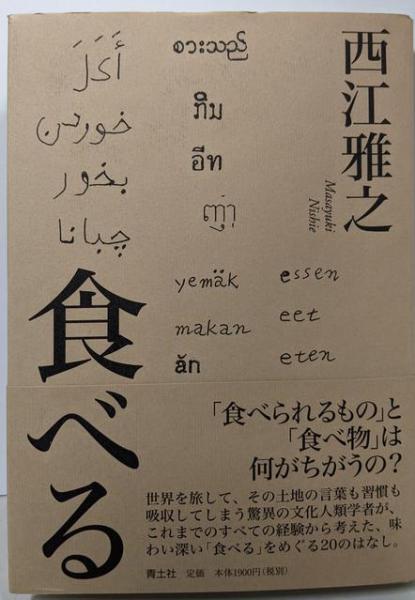 西江雅之
Masayuki
Nishie
စားသည်
อีท
ញ៉ាំ
أَكَلَ
خوردن
بخور
چبانا
yemäk
makan
ăn
essen
eet
eten
食べる
「食べられるもの」と
「食べ物」は
何がちがうの?
世界を旅して、その土地の言葉も習慣も
吸収してしまう驚異の文化人類学者が、
これまでのすべての経験から考えた、味
わい深い「食べる」をめぐる20のはなし。
青土社 定価 本体1900円(税別)